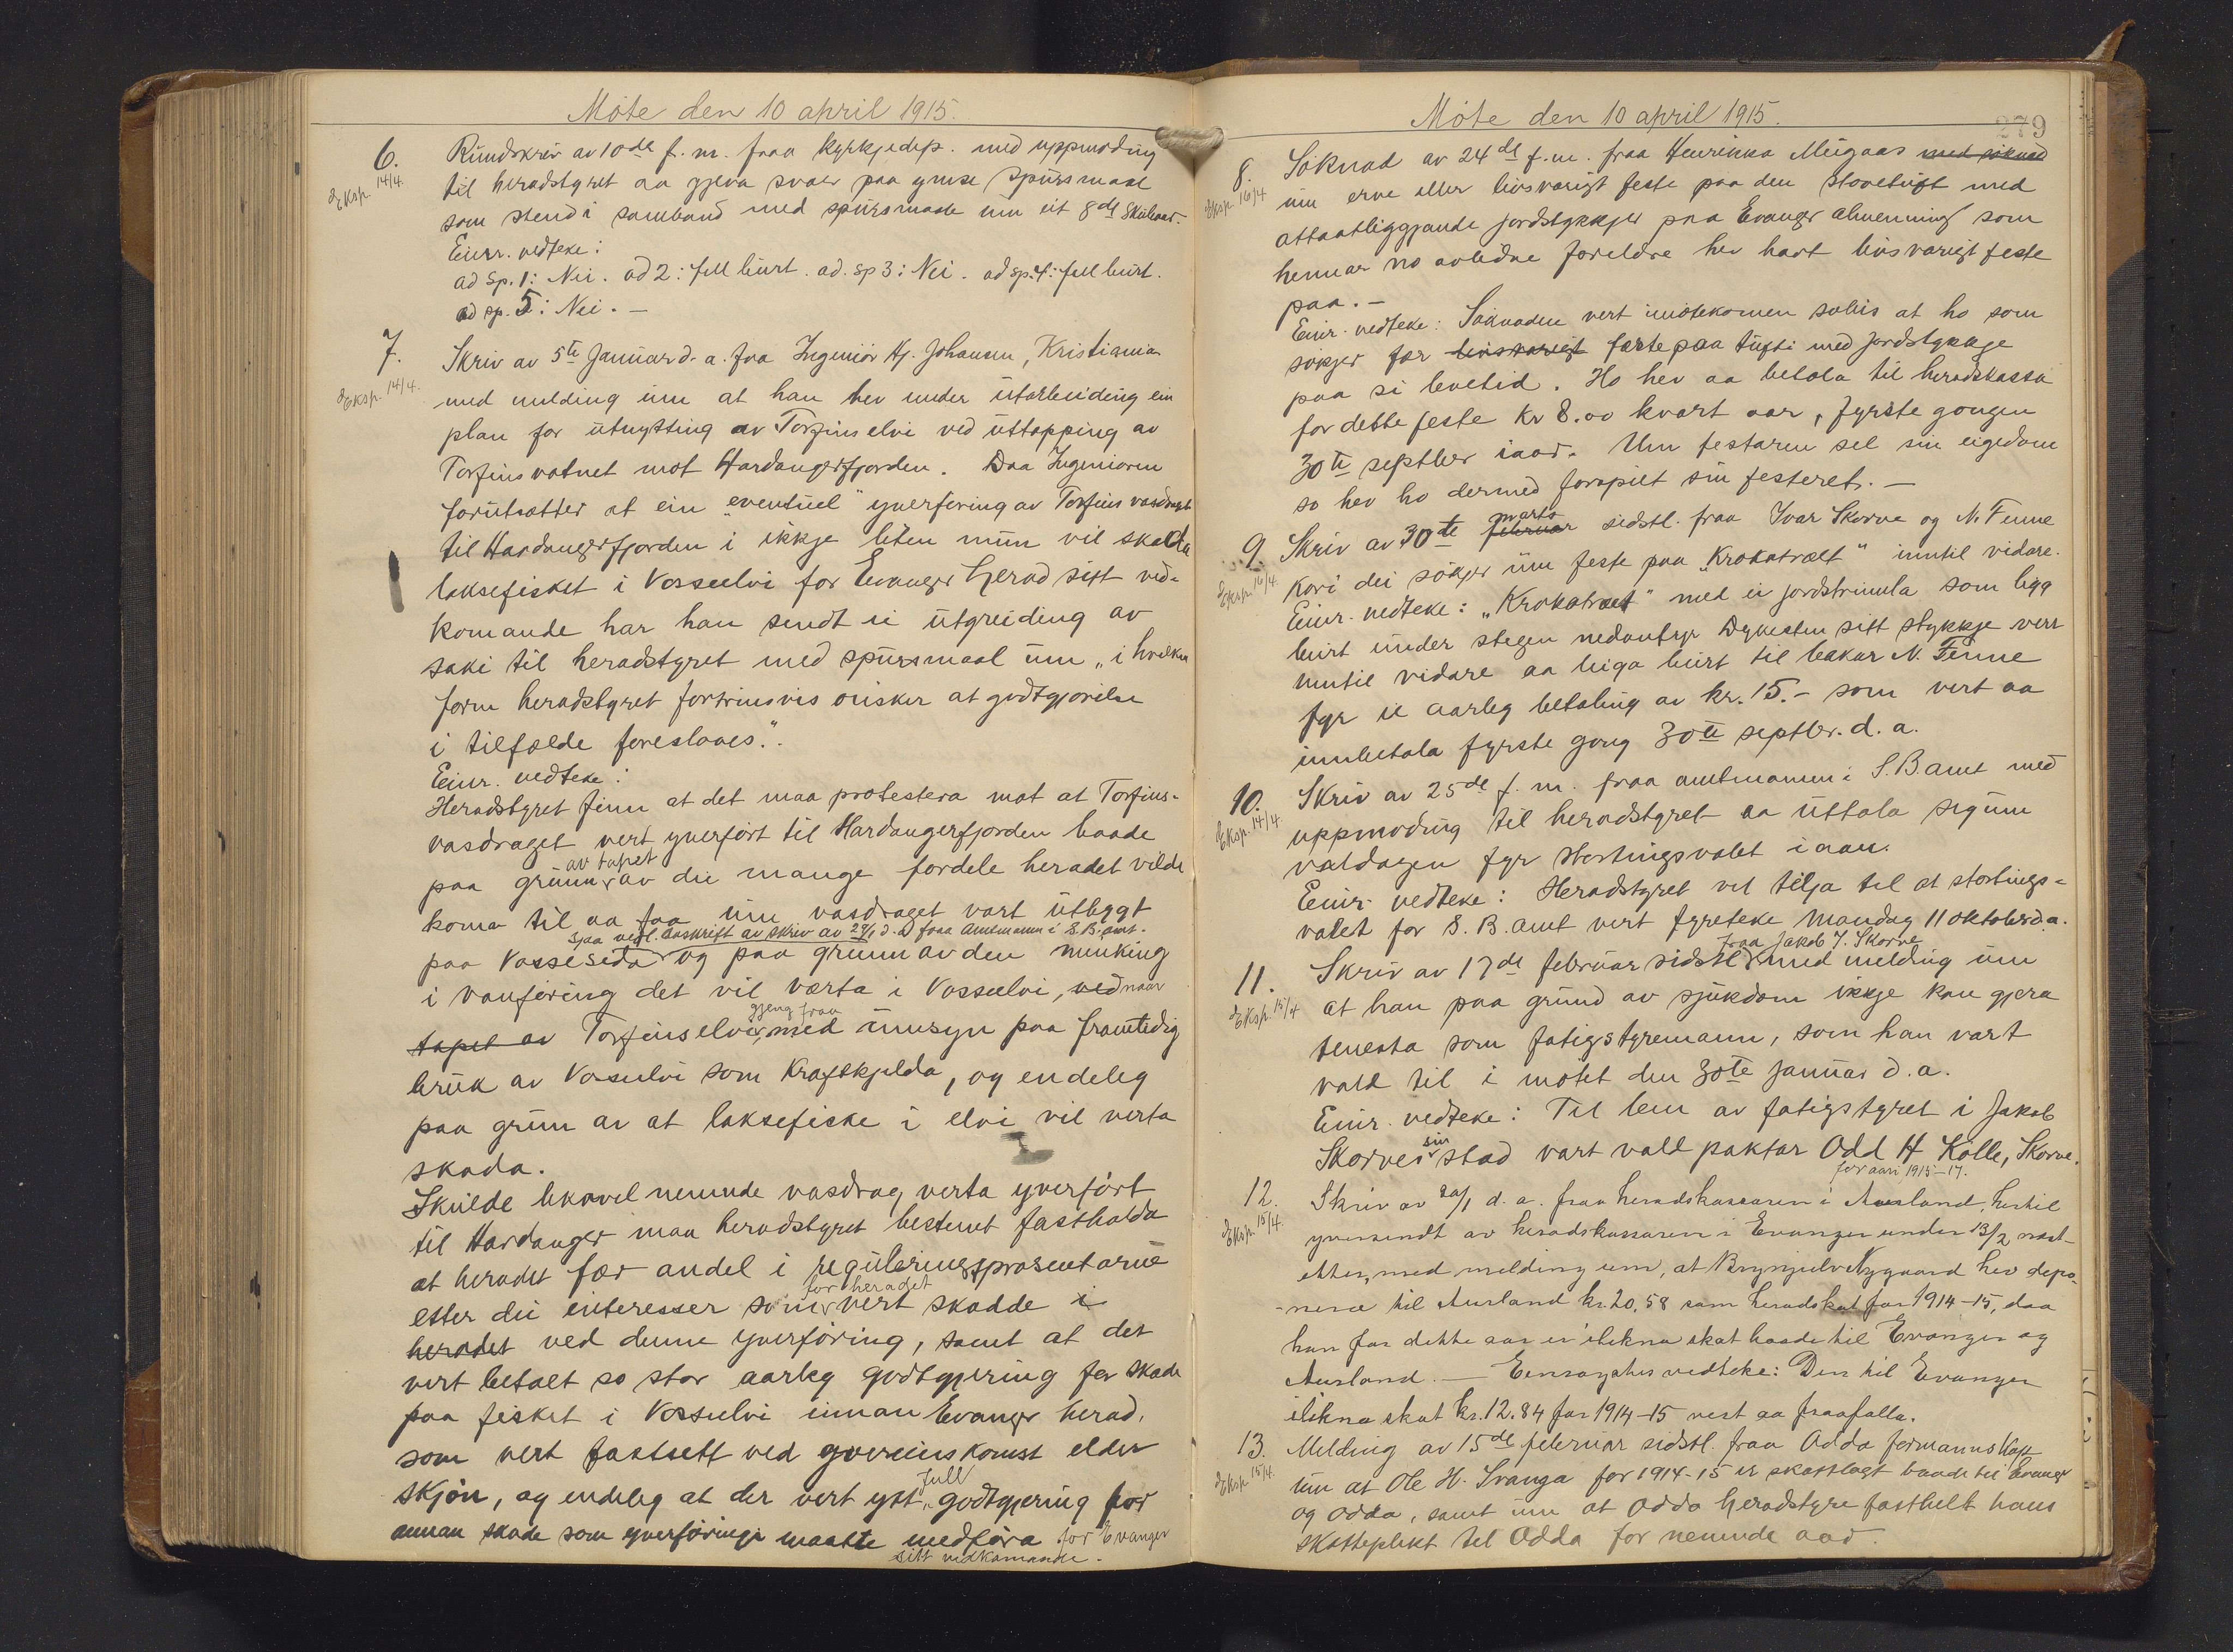 Møte den 10 april 1915.
6. Rundskriv av 10de f. m. fraa kyrkjedep. med uppmoding
Eksp. 14/4.
til heradstyret aa gjeva svar paa ymse spursmaal
som stend i samband med spursmaale um eit 8de skuleaar.
Einr. vedteke:
ad sp. 1: Nei. ad 2: fell burt. ad. sp 3: Nei. ad sp. 4: fell burt.
ad sp. 5: Nei. —
7. Skriv av 5te Januar d. a. fra Ingeniör Hj. Johansen, Kristiania
Eksp. 14/4.
med melding um at han hev under utarbeiding ein
plan for utnytting av Torfinselvi ved uttapping av
Torfinsvatnet mot Hardangerfjorden. Daa Ingeniören
forutsætter at ein "eventuel" yverföring av Torfinsvasdraget
til Hardangerfjorden i ikkje liten mun vil skada
laksefisket i Vosseelvi for Evanger herad sitt ved-
komande har han sendt ei utgreiding av
saki til heradstyret med spursmaal um „i hvilken
form heradstyret fortrinsvis önsker at godtgjörelse
i tilfælde foreslaaes.".
Einr. vedteke:
Heradstyret finn at det maa protestera mot at Torfins-
vasdraget vert yverfört til Hardangerfjorden baade
paa grunn av tapet av dei mange fordele heradet vilde
koma til aa faa um vasdraget vart utbygt
sjaa vedl. avskrift av skriv av 29/1 d. a. fraa Amtmannen i S. B. amt.
paa Vossesida og paa grunn av den minking
i vanföring det vil værta i Vosseelvi, ved naar
tapet av Torfinselvi gjeng fraa, med umsyn paa framtidig
bruk av Vosseelvi som Kraftkjelda, og endeleg
paa grunn av at laksefiske i elvi vil verta
skada.
Skulde likavel nemnde vasdrag verta yverfört
til Hardanger maa heradstyret bestemt fasthalda
at heradet fær andel i reguleringsprosentarne
etter dei interesser som for heradet vert skadde i
heradet ved denne yverföring, samt at det
vert betalt so stor aarleg godtgjering for skade
paa fisket i Vosseelvi innan Evanger herad,
som vert fastsett ved yvereinskomst elder
skjön, og endeleg at der vert ytt full godtgjering for
annan skade som yverföringi maatte medföra for Evanger
sitt vedkomande.
Møte den 10 april 1915.
279
8. Söknad av 24de f. m. fraa Henrikka Mügaas med söknad
Eksp. 16/4
um erve eller livsvarigt feste paa den stovetuft med
attaatliggjande jordstykkjer paa Evanger almenning som
hennar no avlidne foreldre hev havt livsvarigt feste
paa. —
Einr. vedteke: Söknaden vert imötekomen soleis at ho som
sökjer fær livsvarigt feste paa tufti med jordstykkje
paa si levetid. Ho hev aa betala til heradskassa
for dette feste kr 8.00 kvart aar, fyrste gongen
30te septber iaar. Um festaren sel sin eigedom
so hev ho dermed forspilt sin festerett. —
9. Skriv av 30te februar marts sidstl. fraa Ivar Skorve og N. Fenne
Eksp. 16/4.
kori dei sökjer um feste paa „Krokatræet" inntil vidare.
Einr. vedteke: „Krokatræet" med ei jordstrimla som ligg
burt under stegen nedanfyr Dykesten sitt stykkje vert
inntil vidare aa leiga burt til bakar N. Fenne
fyr ei aarleg betaling av kr. 15.— som vert aa
innbetala fyrste gong 30te septbr. d. a.
10. Skriv av 25de f. m. fraa amtmannen i S. B. amt med
Eksp. 14/4.
uppmoding til heradstyret aa uttala seg um
valdagen fyr Stortingsvalet i aar.
Einr. vedteke: Heradstyret vil tilja til at stortings-
valet for S. B. amt vert fyreteke Mandag 11 oktober d. a.
11. Skriv av 17de februar sidstl. fraa Jakob J. Skorve med melding um
Eksp. 15/4
at han paa grund av sjukdom ikkje kan gjera
tenesta som fatigstyremann, som han vart
vald til i mötet den 30te Januar d. a.
Einr. vedteke: Til lem av fatigstyret i Jakob
Skorves sin stad vart vald paktar Odd H Kolle, Skorve.
for aari 1915–17.
12. Skriv av 20/1 d. a. fraa heradskassaren i Aurland, hertil
Eksp. 15/4.
yversendt av heradskassaren i Evanger under 13/2 næst-
etter, med melding um, at Brynjulv Nygaard hev depo-
nera til Aurland kr. 20.58 som heradskat for 1914–15, daa
han for dette aar er ilikna skat baade til Evanger og
Aurland. — Einrøystes vedteke: Den til Evanger
ilikna skat kr. 12.84 for 1914–15 vert aa fraafalla.
13. Melding av 15de februar sidstl. fraa Odda formannskap
Eksp. 15/4.
um at Ole H. Svanga for 1914–15 er skattlagt baade til Evanger
og Odda, samt um at Odda heradstyre fasthelt hans
skatteplikt til Odda for nemnde aar.